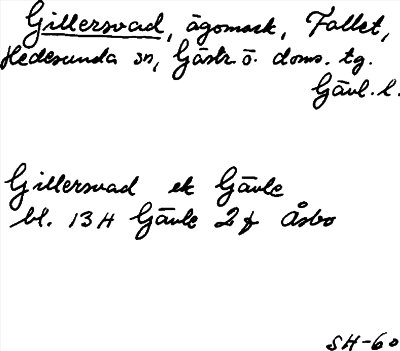 Gillersvad, ägomark, Fallet,
Hedesunda sn, Gästr. ö. doms. tg.
Gävl. l.
Gillersvad ek Gävle
bl. 13H Gävle 2f Åsbo
SH-60